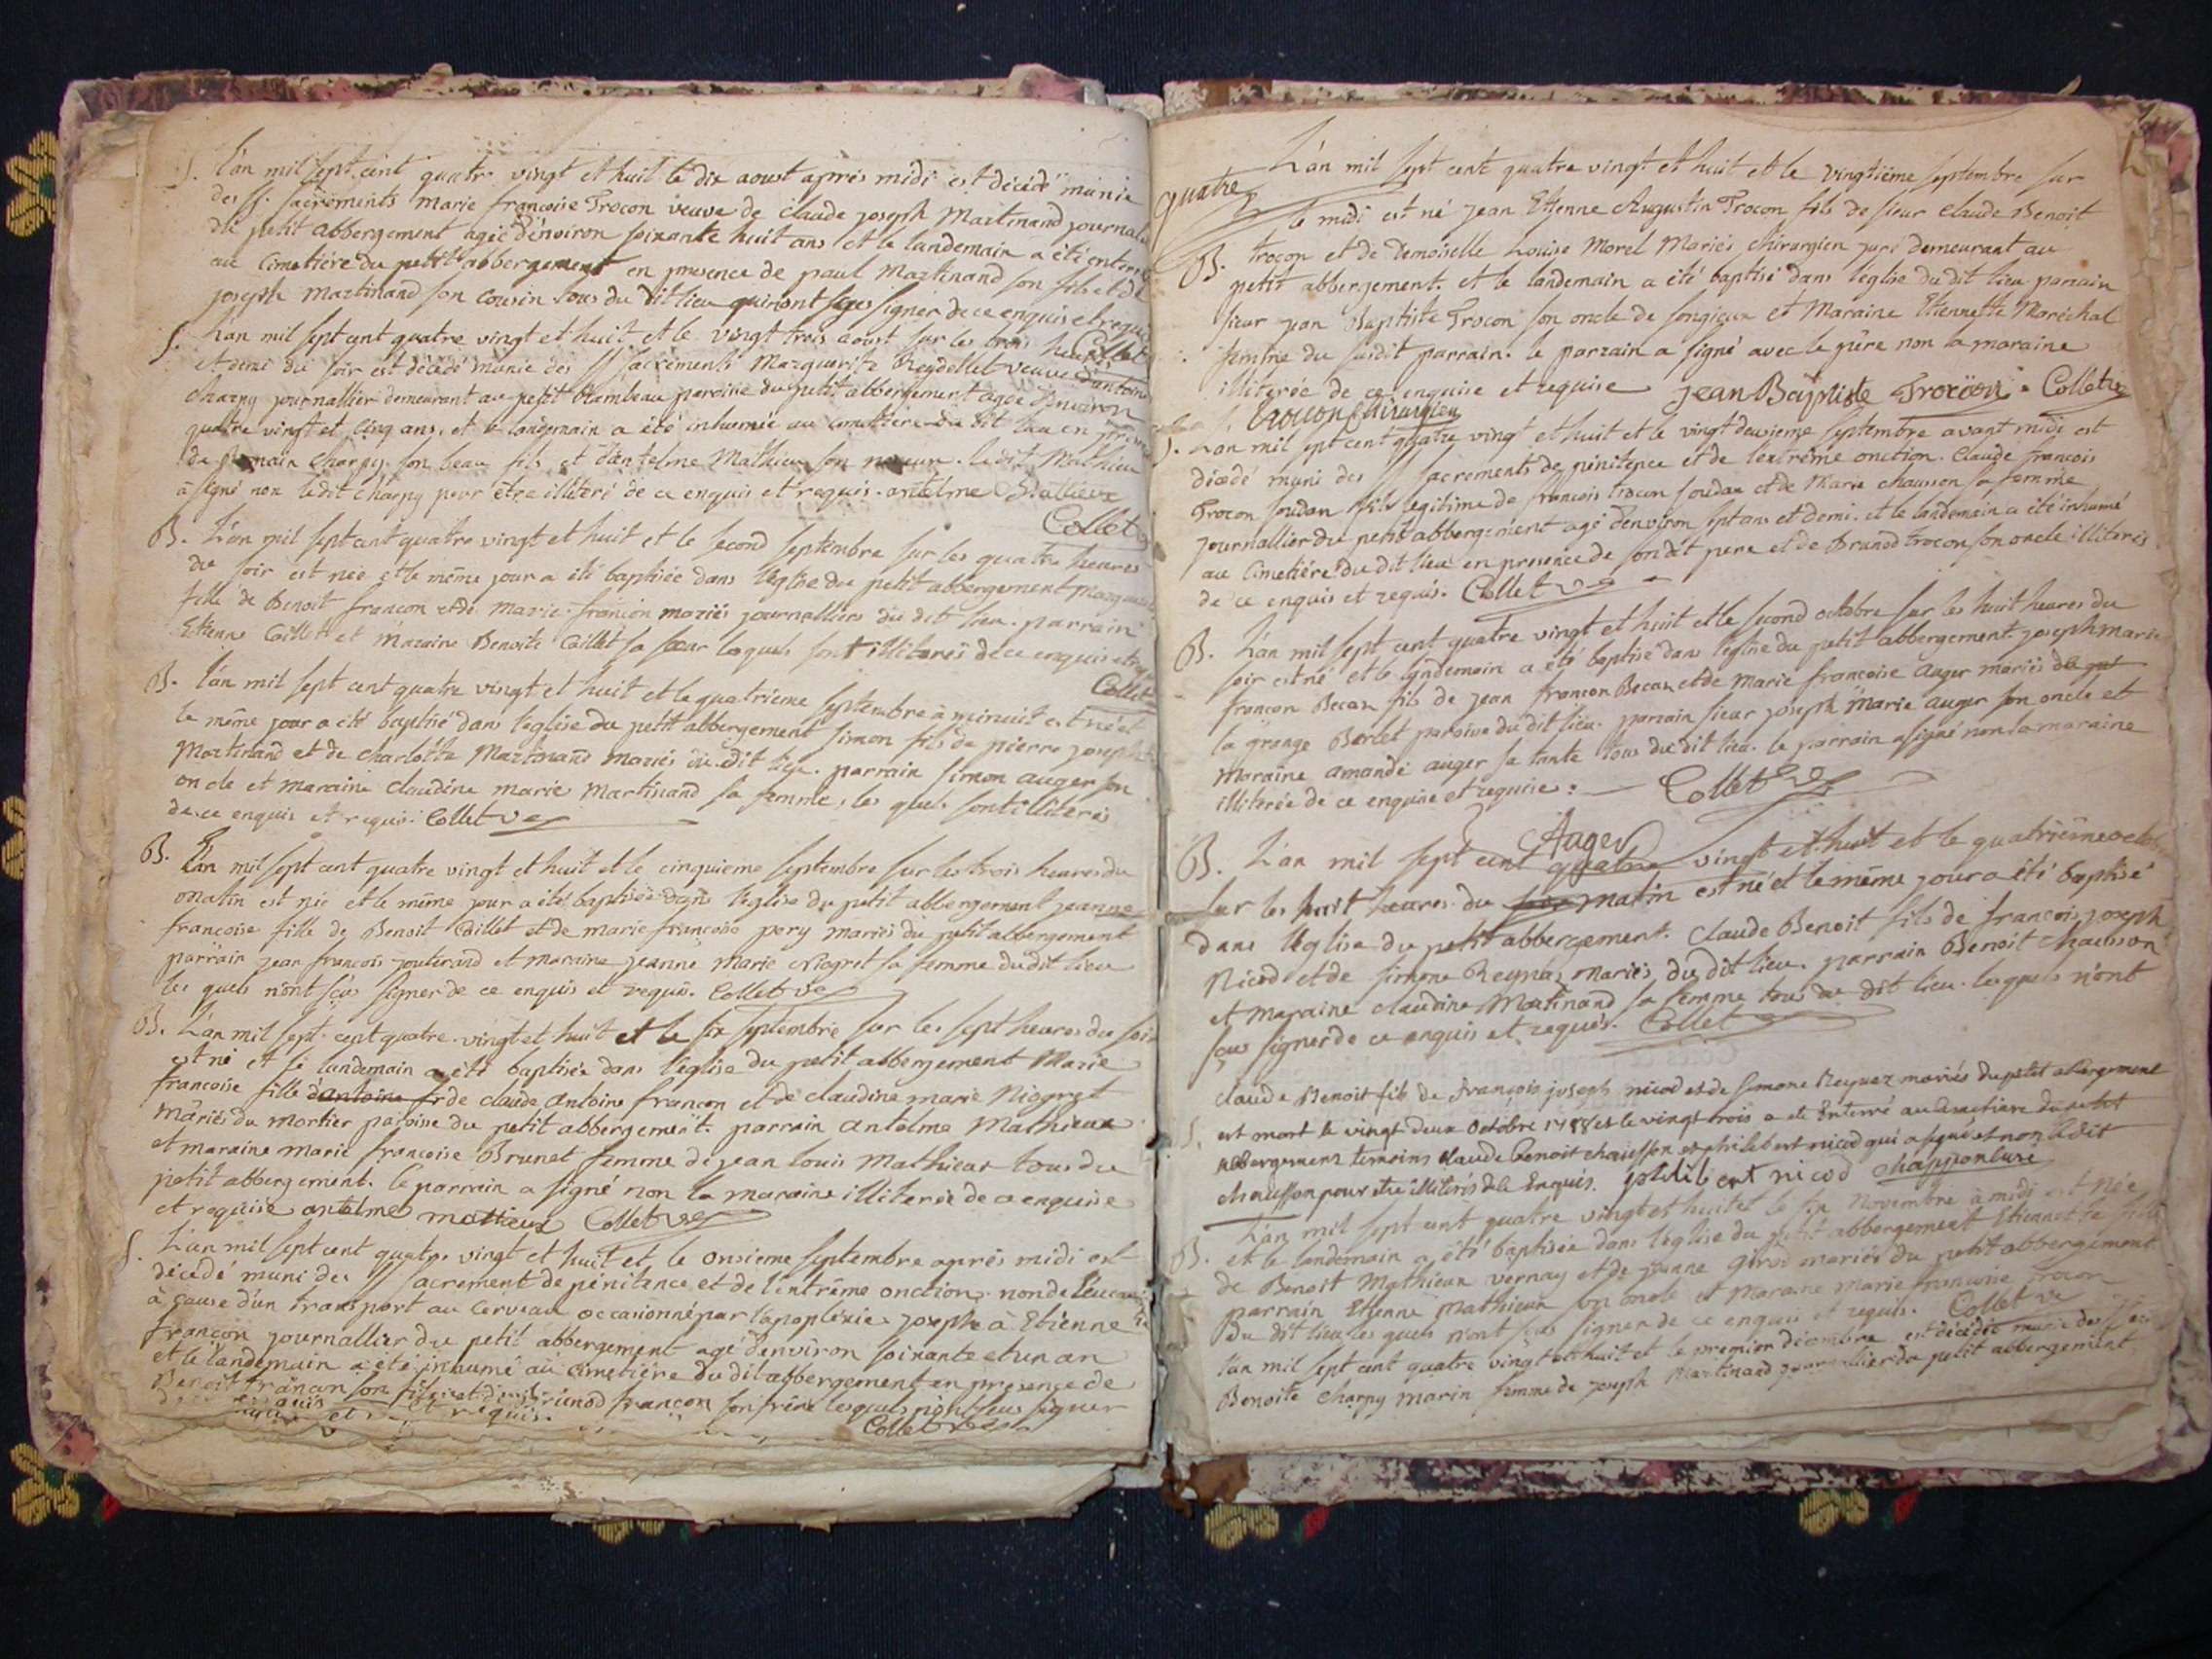 S. L'an mil sept cent quatre vingt et huit le dix aoust après midi est décédé munie
des SS. sacrements marie françoise Trocon veuve de claude joseph Martinand journal
du petit abbergement agée d'environ soixante huit ans et le landemain a été enterr
au cimetiére du petit abbergement en presence de paul Martinand son fils et de
joseph Martinand son cousin tous du dit lieu qui n'ont sçus signer de ce enquis et requi
Collet
S. L'an mil sept cent quatre vingt et huit et le vingt trois aoust sur les trois heures
et demi du soir est décédé munie des SS sacrements Marguerite Reydellet veuve d'antoine
charpy journallier demeurant au petit paroisse du petit abbergement agée d'environ
quatre vingt et cinq ans, et le landemain a été inhumée au cimetiére du dit lieu en
de charpy son beau fils et d'antelme Mathieu son neveu. le dit Mathieu
à signé non le dit charpy pour être illiteré de ce enquis et requis. antelme Matieux
Collet
B. L'an mil sept cent quatre vingt et huit et le second septembre sur les quatre heures
du soir est née et le même jour a été baptisée dans l'eglise du petit abbergement
fille de Benoit françon et de marie françon mariés journalliers du dit lieu. parrain
Etienne Caillet et Maraine Benoite Caillet sa sœur lesquels sont illiterés de ce enquis et
Collet
B. L'an mil sept cent quatre vingt et huit et le quatrieme septembre à minuit est né et
le même jour a été baptisé dans l'eglise du petit abbergement simon fils de pierre joseph
Martinand et de charlotte Martinand mariés du dit lieu. parrain simon auger son
oncle et maraine claudine marie Martinand sa femme, les quels sont illiterés
de ce enquis et requis. Collet
B. L'an mil sept cent quatre vingt et huit et le cinquieme septembre sur les trois heures du
matin est née et le même jour a été baptisée dans l'eglise du petit abbergement jeanne
françoise fille de Benoit Caillet et de marie françoise pery mariés du petit abbergement
parrain jean françois jouterand et maraine jeanne Marie Niogret sa femme du dit lieu
les quels n'ont sçus signer de ce enquis et requis. Collet
B. L'an mil sept cent quatre vingt et huit et le six septembre sur les sept heures du soir
est né et le landemain a été baptisée dans l'eglise du petit abbergement Marie
françoise fille d'antoine fr de claude antoine françon et de claudine marie Niogret
mariés du mortier paroisse du petit abbergement. parrain antelme Mathieux
et maraine marie françoise Brunet femme de jean louis Mathieux tous du
petit abbergement. le parrain a signé non la maraine illiterée de ce enquise
et requise antelme mattieux Collet
S. L'an mil sept cent quatre vingt et huit et le onsieme septembre après midi est
décédé muni des SS sacrement de pénitence et de l'entrême onction, non de l'eucari
à cause d'un transport au cerveau occasionné par l'apoplexie joseph à Etienne
françon journallier du petit abbergement agé d'environ soixante et un an
et le landemain a été inhumé au cimetiére du dit abbergement en presence de
Benoit françon son fils et de Brunod françon son frére lesquels n'ont sçus signer
enquis et requis.
Collet
L'an mil sept cent quatre vingt et huit et le vingtiéme septembre sur
quatre
le midi est né jean Etienne Augustin Trocon fils de sieur claude Benoit
B. trocon et de Demoiselle Louise Morel Mariés chirurgien juré demeurant au
petit abbergement. et le landemain a été baptisé dans l'eglise du dit lieu parrain
sieur jean Baptiste Trocon son oncle de songieux et Maraine Etiennette Maréchal
femme du susdit parrain. le parrain a signé avec le pére non la maraine
illiterée de ce enquise et requise jean Baptiste Trocon Collet
trocon Chirurgien
S. L'an mil sept cent quatre vingt et huit et le vingt deuxieme septembre avant midi est
décédé muni des SS sacrements de pénitence et de l'extréme onction. Claude françois
Trocon soudan fils legitime de françois trocon soudan et de Marie chausson sa femme
journallier du petit abbergement agé d'environ sept ans et demi. et le landemain a été inhumé
au cimetiére du dit lieu en presence de son dit pere et de Brunod trocon son oncle illiterés
de ce enquis et requis. Collet
B. L'an mil sept cent quatre vingt et huit et le second octobre sur les huit heures du
soir est né et le landemain a été baptisé dans l'eglise du petit abbergement. joseph marie
françon Becan fils de jean françon Becan et de Marie françoise auger mariés de
la grange Berlet paroisse du dit lieu. parrain sieur joseph Marie auger son oncle et
Maraine amande auger sa tante tous du dit lieu. le parrain a signé non la maraine
illiterée de ce enquise et requise: Collet
Auger
B. L'an mil sept cent quatre vingt et huit et le quatriéme octob
sur les huit heures du soir matin est né et le même jour a été baptisé
dans l'eglise du petit abbergement. Claude Benoit fils de françois joseph
Nicod et de simone Reynaz mariés du dit lieu. parrain Benoit chausson
et maraine claudine Martinand sa femme tous du dit lieu. lesquels n'ont
sçus signer de ce enquis et requis. Collet
claude Benoit fils de françois joseph nicod et de simone Reynaz mariés du petit abbergement
S. est mort le vingt deux octobre 1788 et le vingt trois a eté Enterré au cimetiere du petit
abbergement temoins claude benoit chausson et philibert nicod qui a signé et non ledit
chausson pour etre illiterés de le Enquis. philibert nicod chapponluse
L'an mil sept cent quatre vingt et huit et le six Novembre à midi est née
B. et le landemain a été baptisée dans l'eglise du petit abbergement Etiennette fille
de Benoit Mathieux vernay et de jeanne girod mariés du petit abbergement
parrain Etienne Mathieux son oncle et Maraine Marie françoise trocon
du dit lieu les quels n'ont sçus signer de ce enquis et requis. Collet
L'an mil sept cent quatre vingt et huit et le premier décembre est décédée munie des
Benoite charpy marin femme de joseph Martinand journallier du petit abbergement